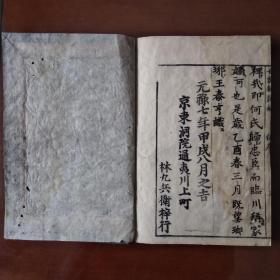 稱我印何氏歸忠臣而臨川稱家
頗可也是歲乙酉春三月既望鄉
琊王泰亨識
元禄七年甲戌八月之吉
京東洞院通夷川上町
林九兵衛梓行